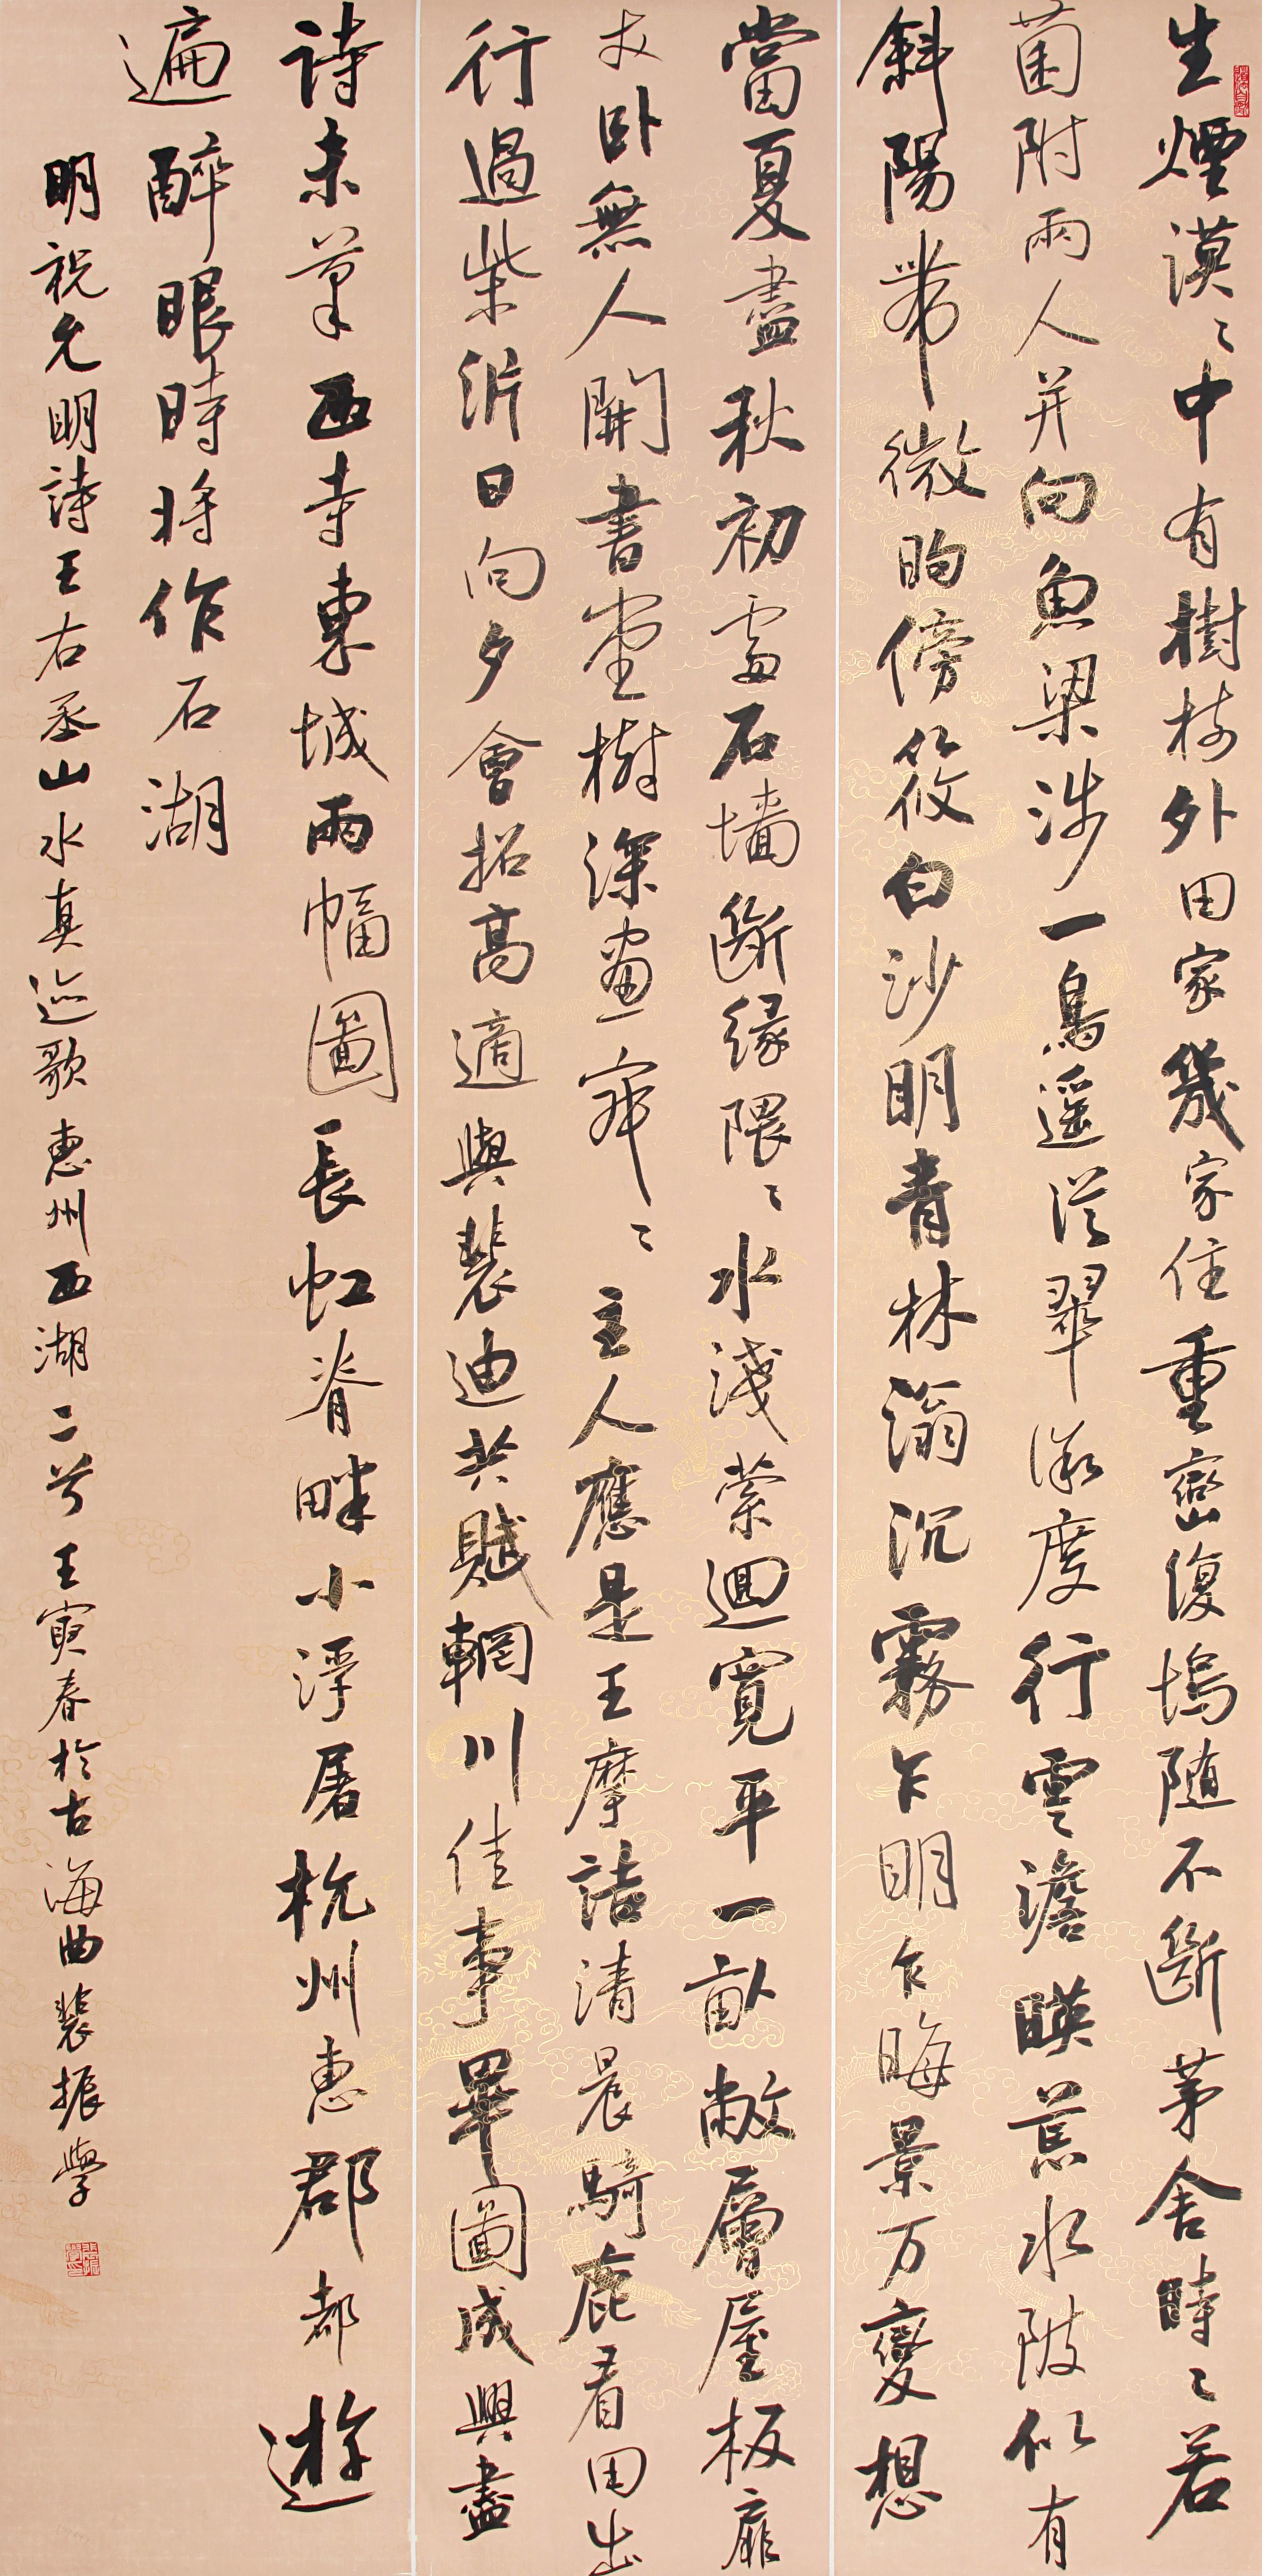 生煙漠〻中有樹樹外田家幾家住重巒復塢随不斷茅舍時〻若
菌附兩人并向魚梁涉一鳥遥從翠微度行雲澹暎蒼水陂似有
斜陽帶微昀傍筱白沙明青林滃沉霧乍明乍晦景万變想
當夏盡秋初處石墻斷緣隈〻水淺縈迴寬平一畝敞層屋板扉
支卧無人開書堂樹深畫寂〻主人應是王摩詰清晨騎鹿看田出
行過柴沂日向夕會招高適與裴迪共賦輞川佳事畢圖成興盡
詩未筆西寺東城兩幅圖長虹脊畔小浮屠杭州惠郡都遊
遍醉眼時將作石湖
明祝允明詩王右丞山水真迹歌惠州西湖二首王寅春於古海曲裴振學